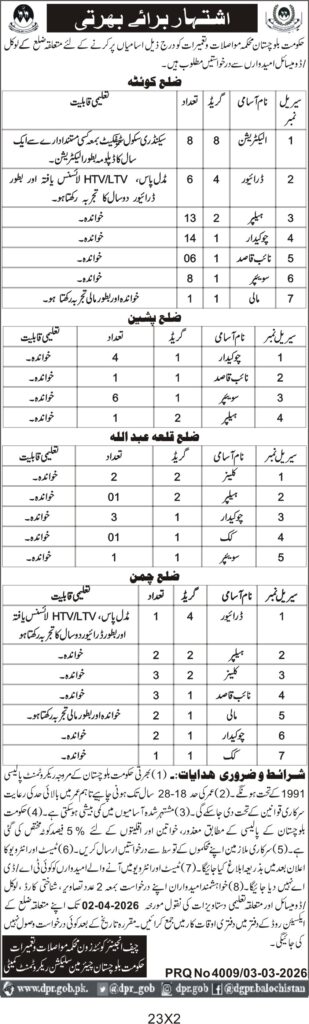 اشتہار برائے بھرتی
حکومت بلوچستان محکمہ مواصلات و تعمیرات کو درج ذیل اسامیاں پر کرنے کے لئے متعلقہ ضلع کے لوکل
/ڈومیسائل امیدواروں سے درخواستیں مطلوب ہیں۔
ضلع کوئٹہ
سیریل نمبر نام آسامی گریڈ تعداد تعلیمی قابلیت
1 الیکٹریشن 8 8 سیکنڈری سکول سرٹیفکیٹ بمعہ کسی مستند ادارے سے ایک
سال کا ڈپلومہ بطور الیکٹریشن۔
2 ڈرائیور 4 6 مڈل پاس، HTV/LTV لائسنس یافتہ اور بطور
ڈرائیور دو سال کا تجربہ رکھتا ہو۔
3 ہیلپر 2 13 خواندہ۔
4 چوکیدار 1 14 خواندہ۔
5 نائب قاصد 1 06 خواندہ۔
6 سویپر 1 8 خواندہ۔
7 مالی 1 1 خواندہ اور بطور مالی تجربہ رکھتا ہو۔
ضلع پشین
سیریل نمبر نام آسامی گریڈ تعداد تعلیمی قابلیت
1 چوکیدار 1 4 خواندہ۔
2 نائب قاصد 1 1 خواندہ۔
3 سویپر 1 6 خواندہ۔
4 ہیلپر 2 1 خواندہ۔
ضلع قلعہ عبداللہ
سیریل نمبر نام آسامی گریڈ تعداد تعلیمی قابلیت
1 کلینر 2 2 خواندہ۔
2 ہیلپر 2 01 خواندہ۔
3 چوکیدار 1 3 خواندہ۔
4 کک 1 01 خواندہ۔
5 سویپر 1 1 خواندہ۔
ضلع چمن
سیریل نمبر نام آسامی گریڈ تعداد تعلیمی قابلیت
1 ڈرائیور 4 1 مڈل پاس، HTV/LTV لائسنس یافتہ
اور بطور ڈرائیور دو سال کا تجربہ رکھتا ہو۔
2 ہیلپر 2 2 خواندہ۔
3 کلینر 2 3 خواندہ۔
4 نائب قاصد 1 3 خواندہ۔
5 مالی 1 2 خواندہ اور بطور مالی تجربہ رکھتا ہو۔
6 چوکیدار 1 2 خواندہ۔
7 کک 1 1 خواندہ۔
شرائط و ضروری ھدایات:۔ (1) بھرتی حکومت بلوچستان کے مروجہ ریکروٹمنٹ پالیسی
1991 کے تحت ہونگے۔ (2) عمر کی حد 18-28 سال تک ہونی چاہیے تاہم عمر میں بالائی حد کی رعایت
سرکاری قوانین کے تحت دی جا سکے گی۔ (3) مشتہر شدہ آسامیوں میں کمی بیشی ہو سکتی ہے۔ (4) حکومت
بلوچستان کے پالیسی کے مطابق معذور، خواتین اور اقلیتوں کے لئے 5 % فیصد کوٹہ مختص کی گئی
ہے۔ (5) سرکاری ملازمین اپنے محکموں کے توسط سے درخواستیں ارسال کریں۔ (6) ٹیسٹ اور انٹرویو کا
اعلان بعد میں بذریعہ ابلاغ کیا جائیگا۔ (7) ٹیسٹ اور انٹرویو میں آنے والے امیدواروں کو کوئی ٹی اے/ڈی
اے نہیں دیا جائیگا۔ (8) خواہشمند امیدواران اپنے درخواست بمعہ 2 عدد تصاویر، شناختی کارڈ، لوکل
/ڈومیسائل اور متعلقہ تعلیمی دستاویزات کی نقول مورخہ 02-04-2026 تک اپنے متعلقہ ضلع کے
ایکسین روڈ کے دفتر میں دفتری اوقات کار میں جمع کرائیں۔ مقررہ تاریخ کے بعد کوئی درخواست وصول نہیں
کی جائیگی۔
چیف انجینئر کوئٹہ زون محکمہ مواصلات و تعمیرات
حکومت بلوچستان چیئرمین سلیکشن ریکروٹمنٹ کمیٹی
PRQ No 4009/03-03-2026
www.dpr.gob.pk. @dpr_gob @dpr_gob @dgpr.balochistan
23X2